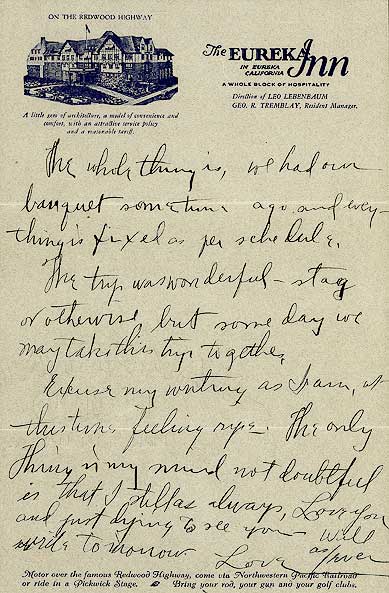 ON THE REDWOOD HIGHWAY
The EUREKA Inn
IN EUREKA
CALIFORNIA
A WHOLE BLOCK OF HOSPITALITY
Direction of LEO LEBENBAUM
GEO. R. TREMBLAY, Resident Manager.
A little gem of architecture, a model of convenience and
comfort, with an attractive service policy
and a reasonable tariff.
The whole thing is, we had our
banquet sometime ago and every-
thing is fixed as per schedule.
The trip was wonderful - stag
or otherwise but some day we
may take this trip together.
Excuse my writing as I am, at
this time feeling The only
thing in my mind not doubtful
is that I still as always, Love you
and just dying to see you Will
write tomorrow. Love as ever
Motor over the famous Redwood Highway, come via Northwestern Pacific Railroad
or ride in a Pickwick Stage. Bring your rod, your gun and your golf clubs.